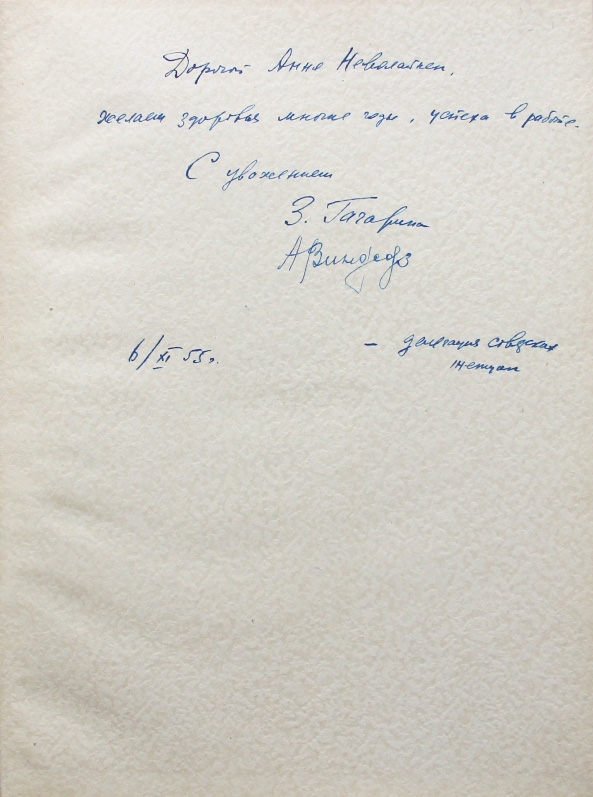 Дорогой Анне Неволайнен,
желаем здоровья многие годы, успеха в работе.
С уважением
З. Гагарина
6/XI 55г.
— делегация советских
женщин